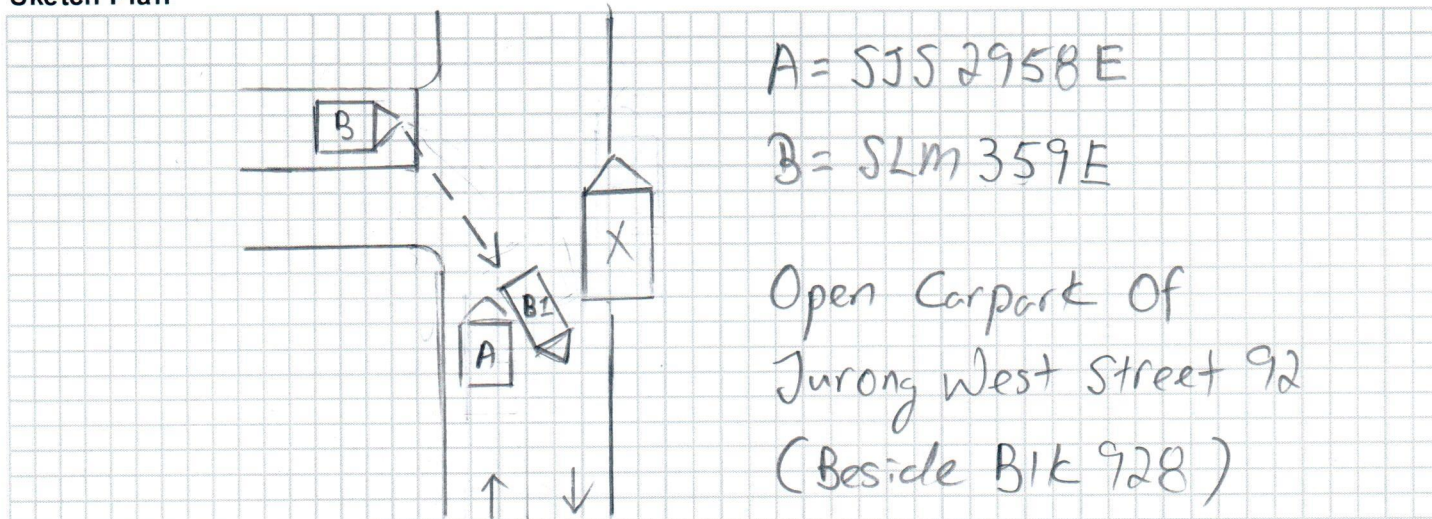 Sketch Plan
A = SJS 2958E
B
B = SLM 359E
X
Open Carpark Of
B1
A
Jurong West Street 92
(Beside Blk 928)